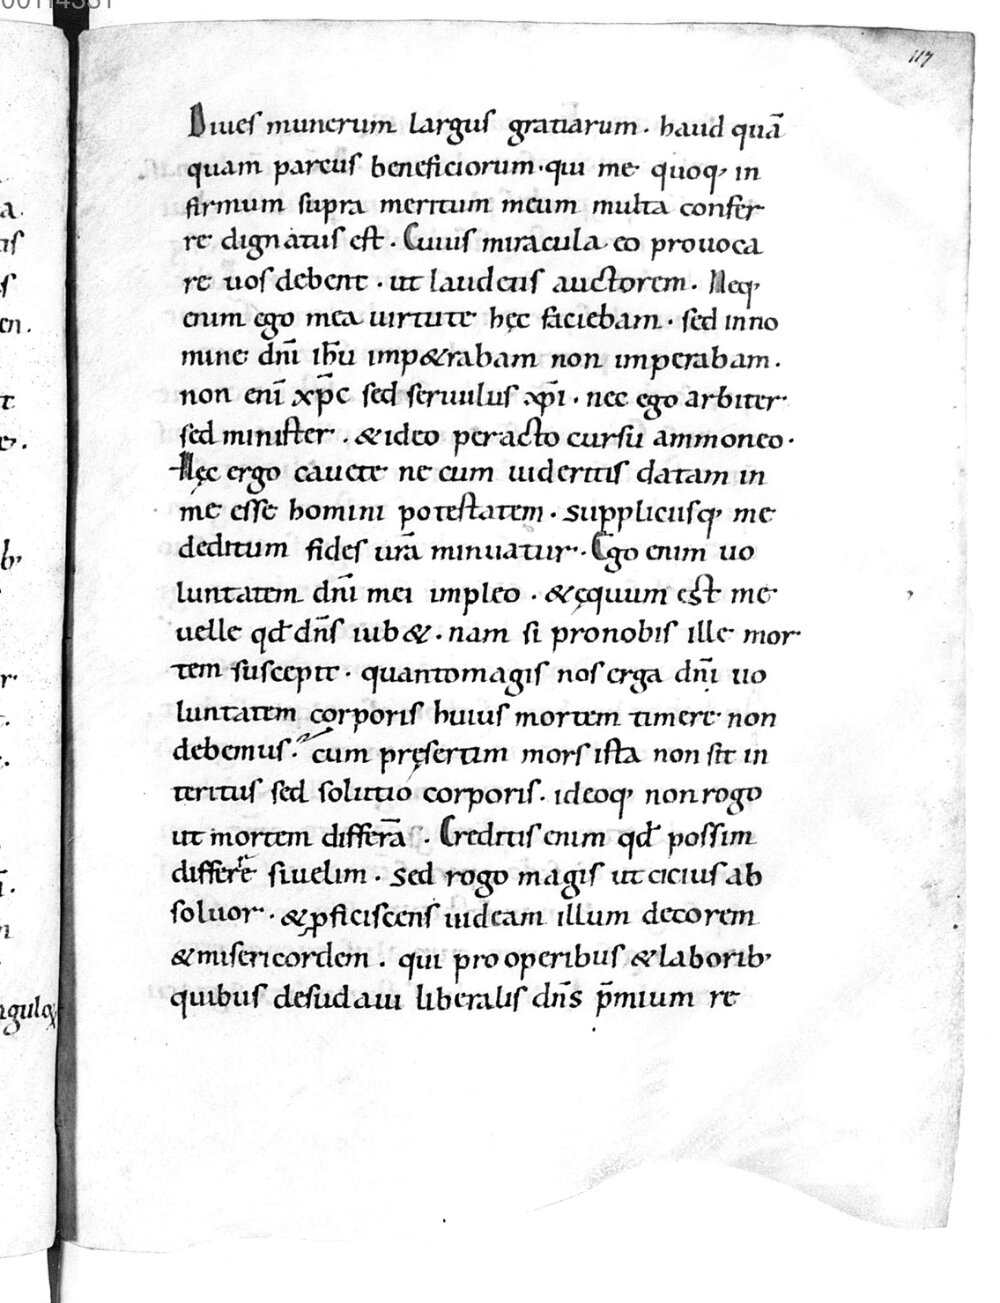 117
Diues munerum largus gratiarum · haud quā
quam parcus beneficiorum · qui me quoq; in
firmum supra meritum meum multa confer
re dignatus est · Cuius miracula eo prouoca
re uos debent · ut laudetis auctorem · Neq;
enim ego mea uirtute hęc faciebam · sed in no
mine dn̄i ih̄u imp&rabam non imperabam ·
non eni̅ xp̄c sed seruulus xp̄i · nec ego arbiter
sed minister · & ideo peracto cursu ammoneo ·
Hęc ergo cauete ne cum uideritis datam in
me esse homini potestatem · supplicusq; me
deditum fides ur̄a minuatur · Ego enim uo
luntatem dn̄i mei impleo · & ęquum est me
uelle qd̄ dn̄s iub& · nam si pro nobis ille mor
tem suscepit · quanto magis nos erga dn̄i uo
luntatem corporis huius mortem timere non
debemus · cum pręsertim mors ista non sit in
teritus sed solutio corporis · ideoq; non rogo
ut mortem differā · Creditis enim qd̄ possim
differre si uelim · sed rogo magis ut cicius ab
soluor · & ꝓficiscens uideam illum decorem
& misericordem · qui pro operibus & laborib;
quibus desudaui liberalis dn̄s p̄mium re